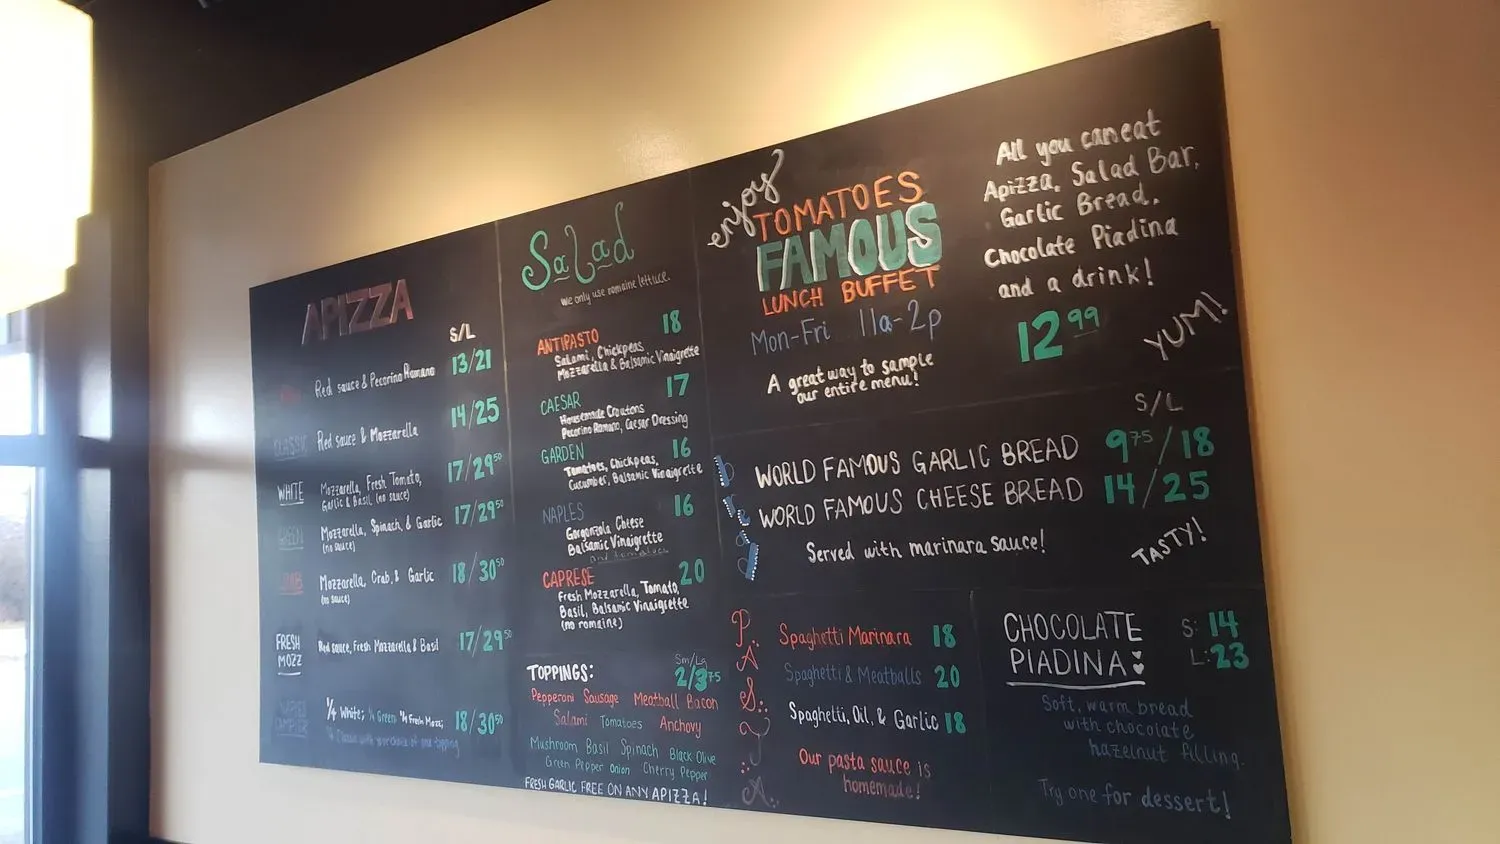 APIZZA
S/L
Red sauce & Pecorino Romano 13/21
CLASSIC Red sauce & Mozzarella 14/25
WHITE Mozzarella, Fresh Tomato, 17/29⁵⁰
Garlic & Basil (no sauce)
GREEN Mozzarella, Spinach, & Garlic 17/29⁵⁰
(no sauce)
CRAB Mozzarella, Crab, & Garlic 18/30⁵⁰
(no sauce)
FRESH
MOZZ Red sauce, Fresh Mozzarella & Basil 17/29⁵⁰
SAMPLER ¼ White; ¼ Green ¼ Fresh Mozz; 18/30⁵⁰
¼ Classic with your choice of one topping
Salad
we only use romaine lettuce.
ANTIPASTO 18
Salami, Chickpeas,
Mozzarella & Balsamic Vinaigrette
CAESAR 17
Homemade Croutons
Pecorino Romano, Caesar Dressing
GARDEN 16
Tomatoes, Chickpeas,
Cucumber, Balsamic Vinaigrette
NAPLES 16
Gorgonzola Cheese
Balsamic Vinaigrette
and tomatoes
CAPRESE 20
Fresh Mozzarella, Tomato,
Basil, Balsamic Vinaigrette
(no romaine)
TOPPINGS: Sm/Lg
2/3⁷⁵
Pepperoni Sausage Meatball Bacon
Salami Tomatoes Anchovy
Mushroom Basil Spinach Black Olive
Green Pepper Onion Cherry Pepper
FRESH GARLIC FREE ON ANY APIZZA!
enjoy
TOMATOES
FAMOUS
LUNCH BUFFET
Mon-Fri 11a-2p
A great way to sample
our entire menu!
All you can eat
Apizza, Salad Bar,
Garlic Bread,
Chocolate Piadina
and a drink!
12⁹⁹
YUM!
S/L
WORLD FAMOUS GARLIC BREAD 9⁷⁵/18
WORLD FAMOUS CHEESE BREAD 14/25
Served with marinara sauce!
TASTY!
PASTA
Spaghetti Marinara 18
Spaghetti & Meatballs 20
Spaghetti, Oil, & Garlic 18
Our pasta sauce is
homemade!
CHOCOLATE S: 14
PIADINA L: 23
Soft, warm bread
with chocolate
hazelnut filling.
Try one for dessert!